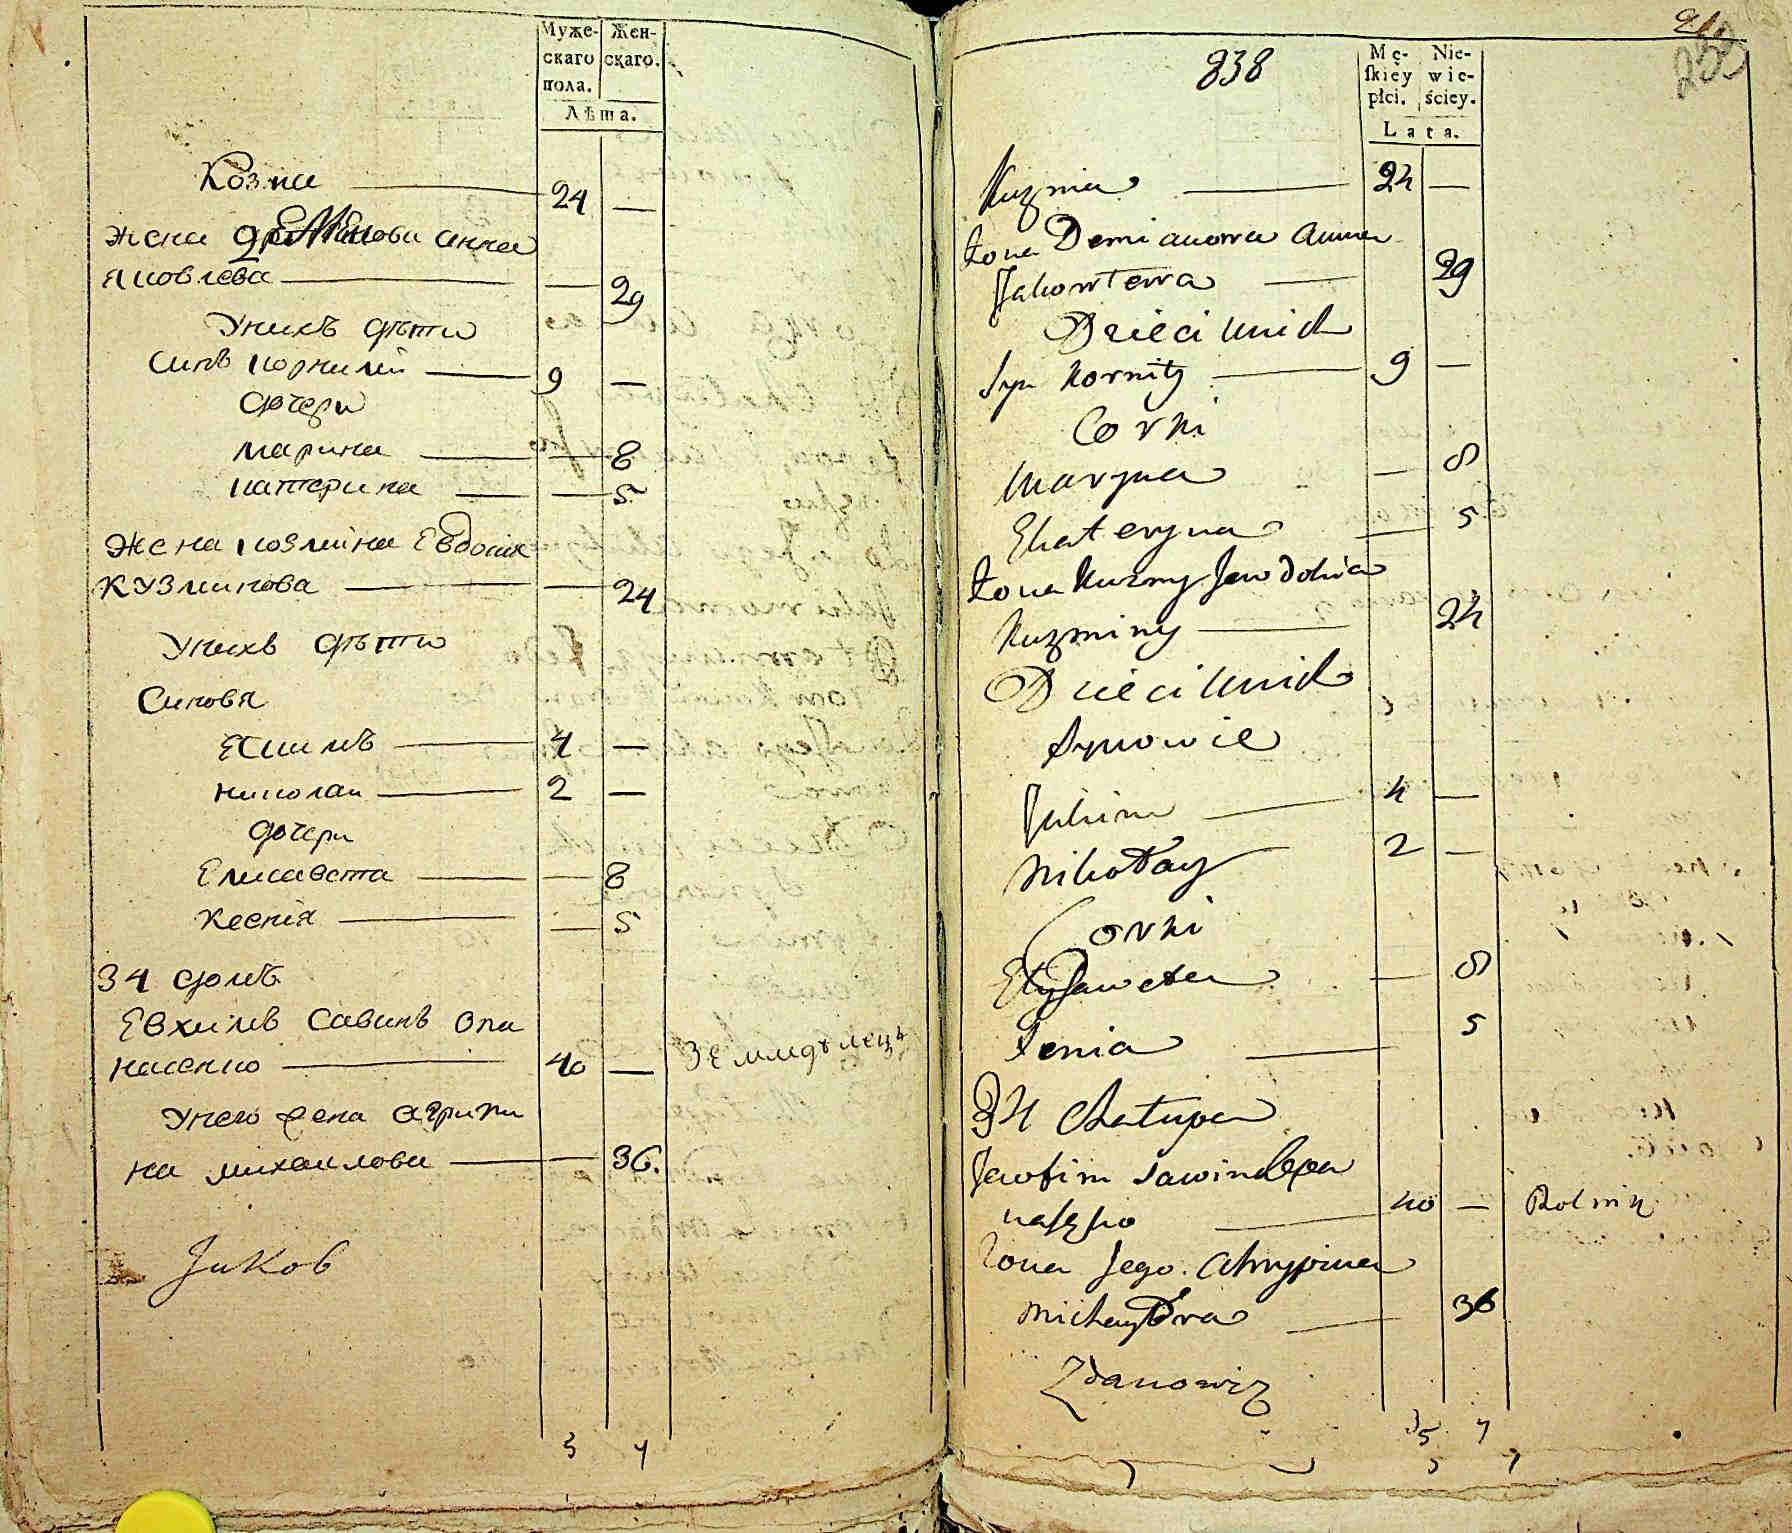 Муже-
скаго
пола.
Жен-
скаго.
Лѣта.
Козма 24 —
жена Демянова анна
яковлева — 29
Унихъ дѣти
Синъ корнилій 9 —
дочери
марина — 8
катерина — 5
жена козмина Евдокия
кузминова — 24
Унихъ дѣти
Синовя
Екимъ 4 —
николаи 2 —
дочери
Елисавета — 8
Ксенія — 5
34 домъ
Евхимъ Савинъ Опа
насенко 40 — Земледѣлецъ
Унего жена агрипи
на михаилова — 36.
Яков
3 7
21
838
238
Mę-
ſkiey
płci.
Nie-
wie-
ściey.
Lata.
Kuzma 24 —
żona Demianowa Anna
Jakowlewa 29
Dzieci Unich
Syn Korniły 9 —
Corki
Maryna — 8
Ekateryna — 5
żona Kuzmy Jewdokia
Kuzminy 24
Dzieci Unich
Synowie
Jukim 4 —
Nikołay 2 —
Corki
Elyzaweta — 8
Xenia — 5
34 Chałupa
Jewfim Sawin Opa
nasęko 40 — Rolnik
żona Jego Ahrypina
Michayłowa 36
Zdanowicz
5 7